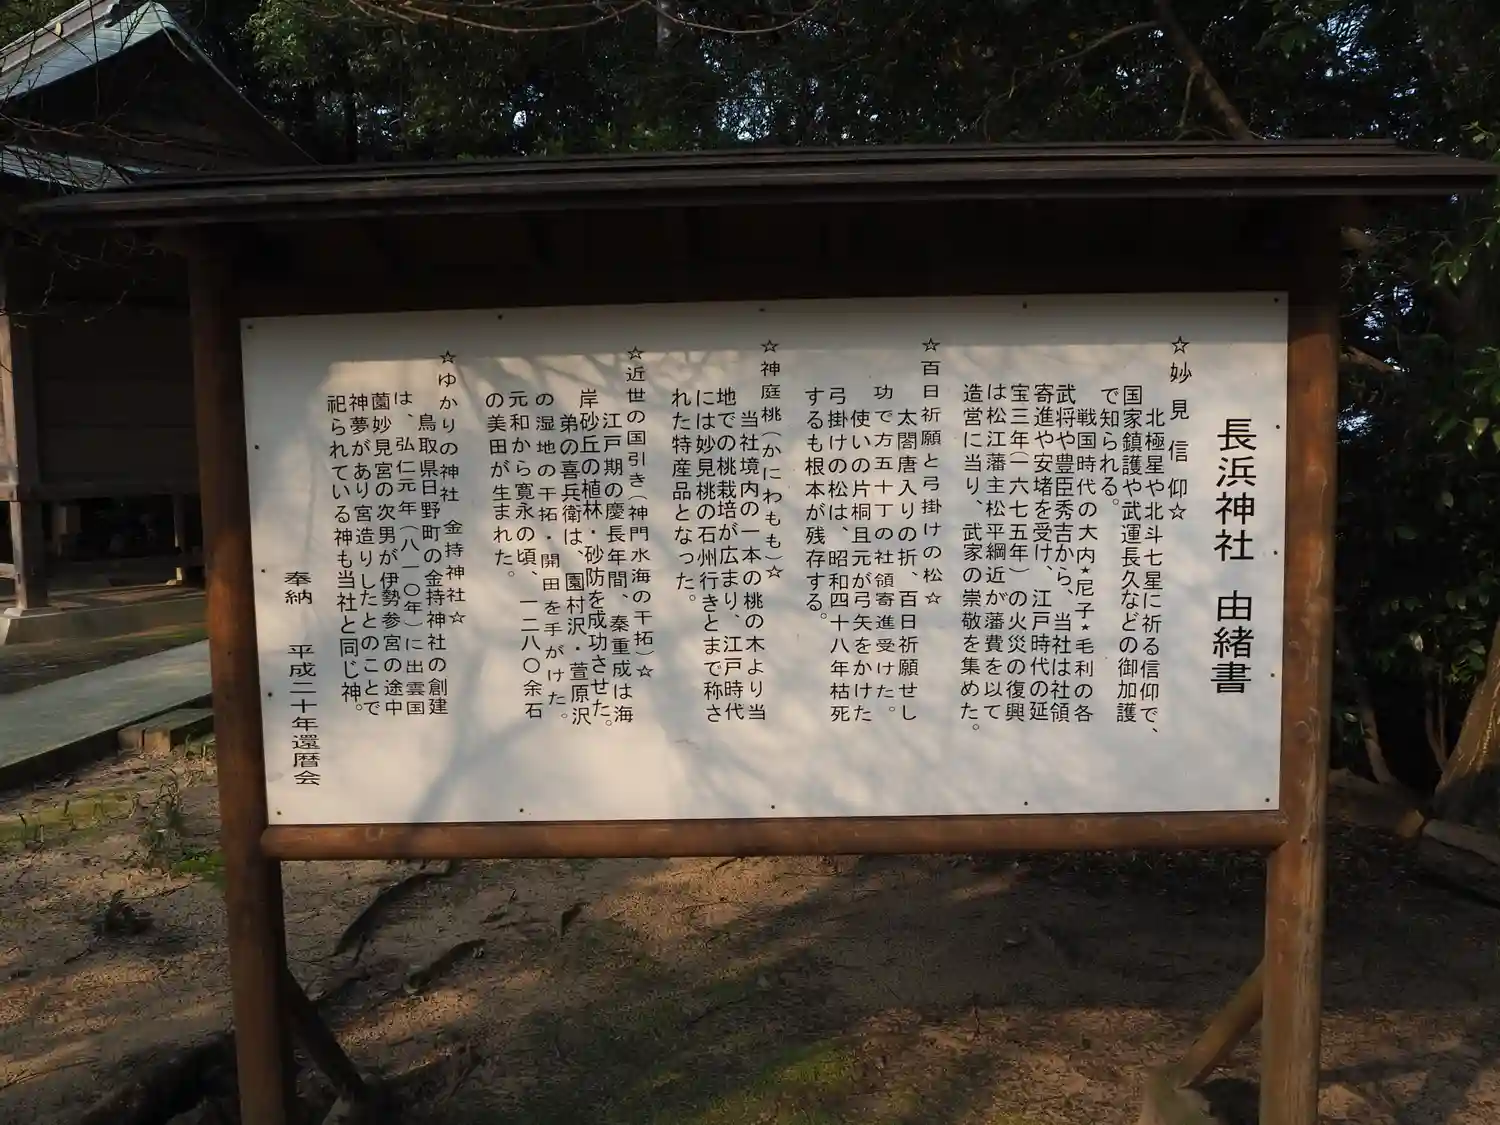 長浜神社 由緒書
☆妙見信仰☆
北極星や北斗七星に祈る信仰で、
国家鎮護や武運長久などの御加護
で知られる。
戦国時代の大内★尼子★毛利の各
武将や豊臣秀吉から、当社は社領
寄進や安堵を受け、江戸時代の延
宝三年(一六七五年)の火災の復興
は松江藩主松平綱近が藩費を以て
造営に当り、武家の崇敬を集めた。
☆百日祈願と弓掛けの松☆
太閤唐入りの折、百日祈願せし
功で方五十丁の社領寄進受けた。
使いの片桐且元が弓矢をかけた
弓掛けの松は、昭和四十八年枯死
するも根本が残存する。
☆神庭桃(かにわもも)☆
当社境内の一本の桃の木より当
地での桃栽培が広まり、江戸時代
には妙見桃の石州行きとまで称さ
れた特産品となった。
☆近世の国引き(神門水海の干拓)☆
江戸期の慶長年間、秦重成は海
岸砂丘の植林・砂防を成功させた。
弟の喜兵衛は、園村沢・萱原沢
の湿地の干拓・開田を手がけた。
元和から寛永の頃、一二八〇余石
の美田が生まれた。
☆ゆかりの神社 金持神社☆
鳥取県日野町の金持神社の創建
は、弘仁元年(八一〇年)に出雲国
薗妙見宮の次男が伊勢参宮の途中
神夢があり宮造りしたとのことで
祀られている神も当社と同じ神。
奉納 平成二十年還暦会